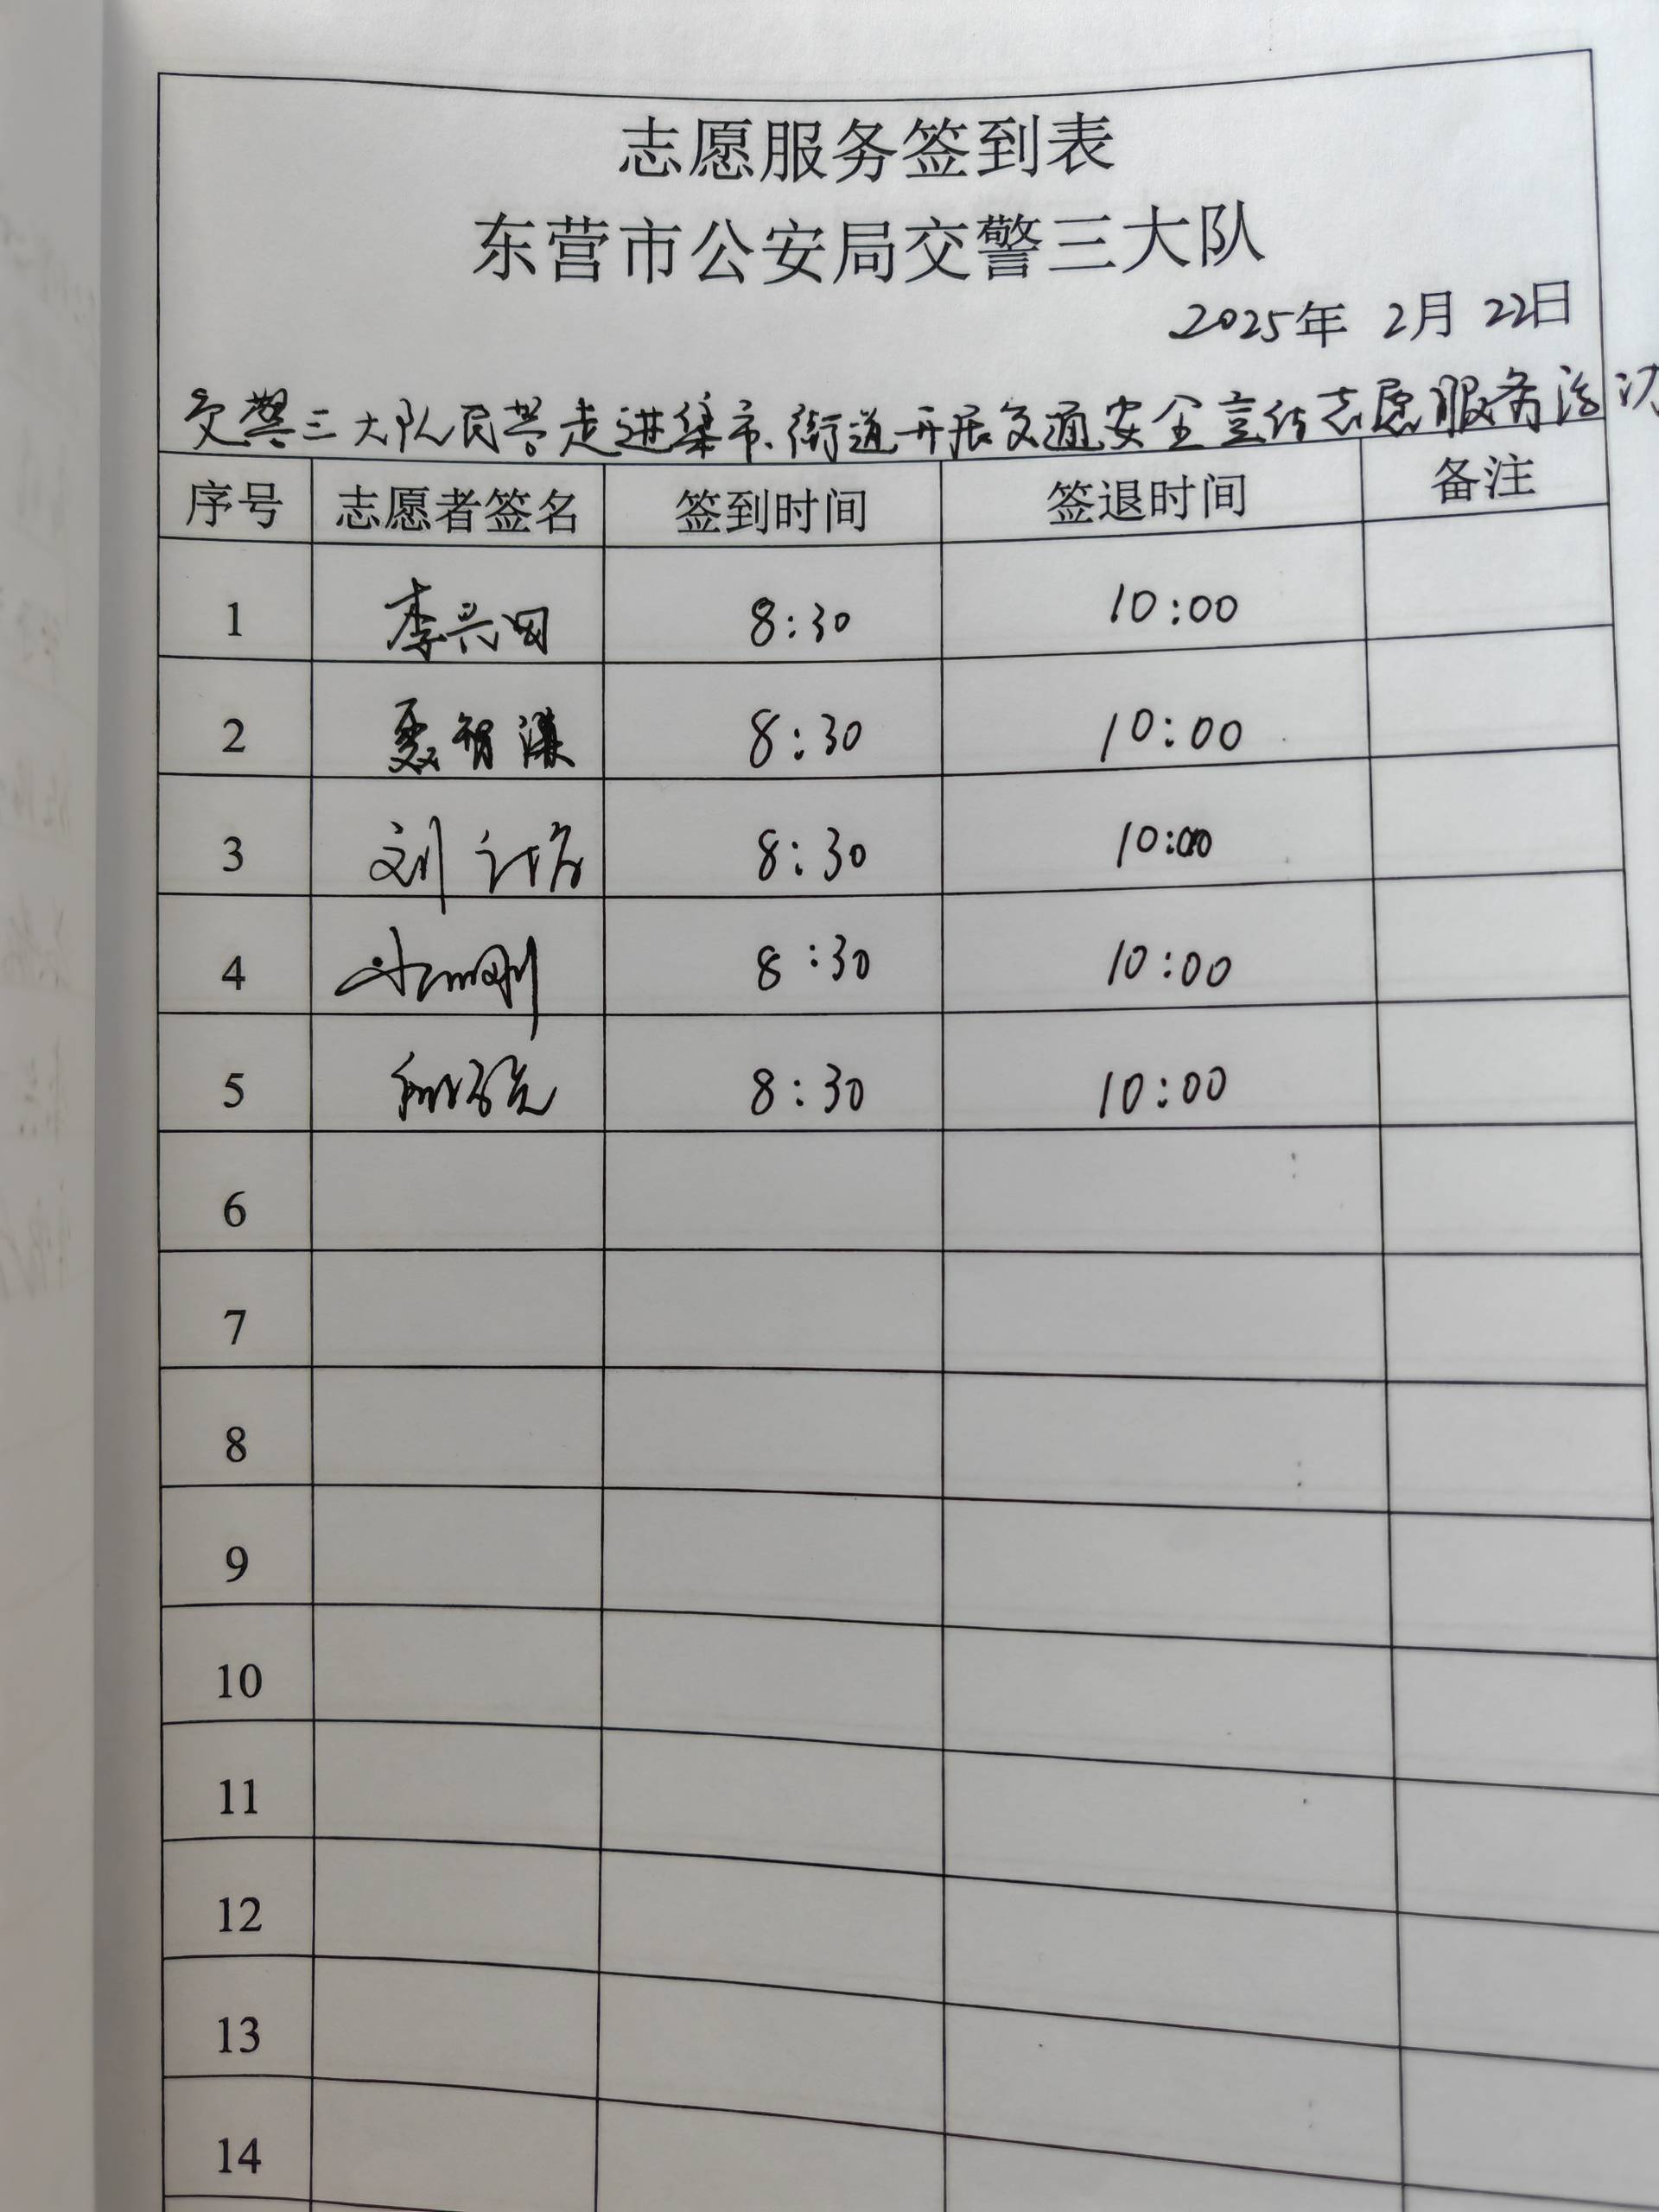 志愿服务签到表
东营市公安局交警三大队
2025年 2月 22日
交警三大队民警走进集市、街道开展交通安全宣传志愿服务活动
序号 志愿者签名 签到时间 签退时间 备注
1 李兴田 8:30 10:00
2 聂智谦 8:30 10:00
3 刘 8:30 10:00
4 8:30 10:00
5 8:30 10:00
6
7
8
9
10
11
12
13
14